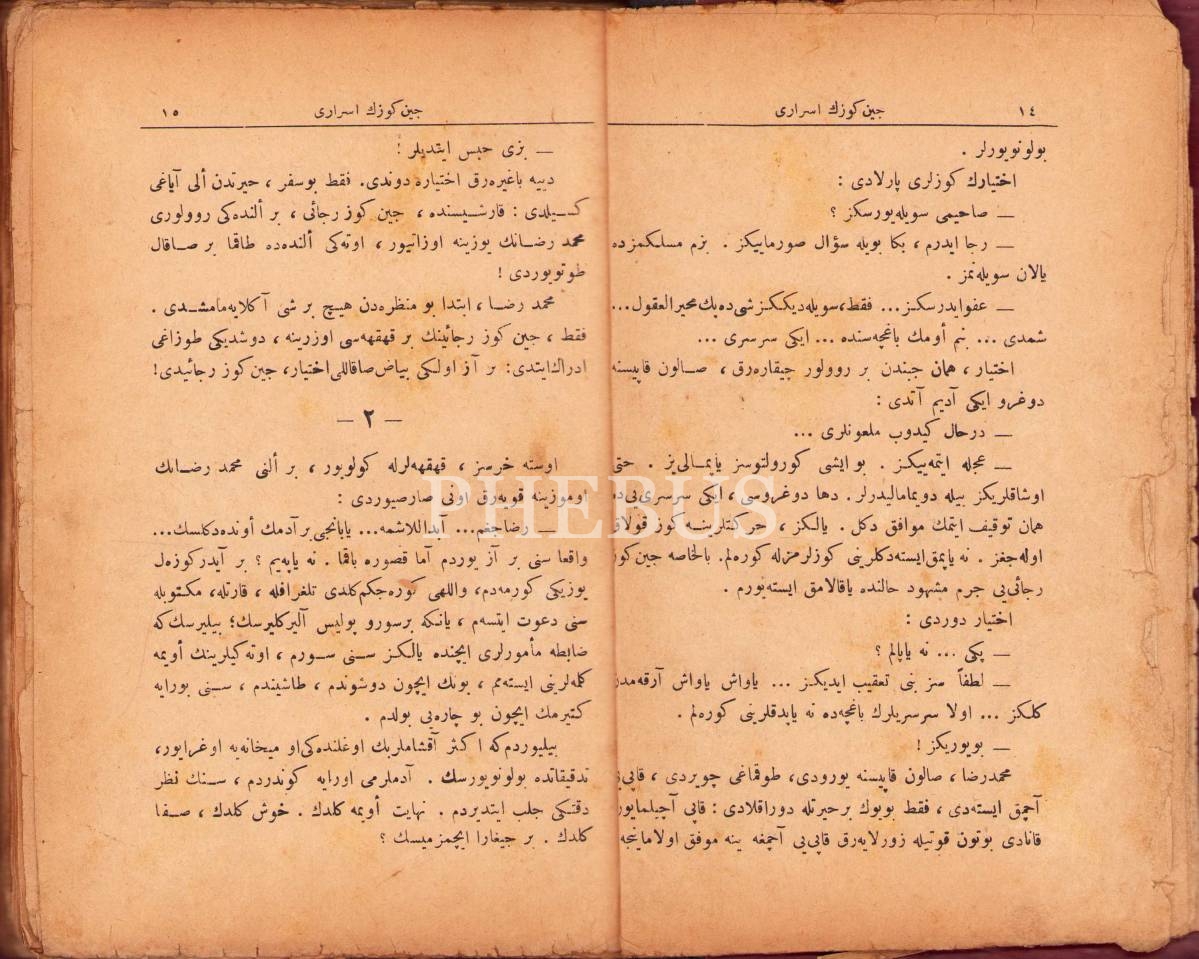 ١٤
جين كوزك اسرارى
بولونويورلر .
اختيارك كوزلرى پارلادى :
— صاحيمى سويله‌يورسكز ؟
— رجا ايدرم ، بكا بويله سؤال صورماييكز . بزم مسلكمزده
يالان سويله‌نمز .
— عفو ايدرسكز ... فقط، سويله‌ديككز شى ده پك محيرالعقول ...
شمدى ... بنم أومك باغچه‌سنده ... ايكى سرسرى ...
اختيار ، همان جبندن بر روولور چيقاره‌رق ، صالون قاپيسنه
دوغرو ايكى آديم آتدى :
— درحال كيدوب ملعونلرى ...
— عجله ايتمه‌ييكز . بو ايشى كورولتوسز ياپمالى‌يز . حتى
اوشاقلريكز بيله دويماماليدرلر . دها دوغروسى ، ايكى سرسرى‌يى ده
همان توقيف ايتمك موافق دكل . يالكز ، حركتلرينه كوز قولاق
اوله‌جغز . نه ياپمق ايسته‌دكلرينى كوزلرمزله كوره‌لم. بالخاصه جين كوز
رجائى‌يى جرم مشهود حالنده ياقالامق ايسته‌يورم .
اختيار دوردى :
— پكى ... نه ياپالم ؟
— لطفاً سز بنى تعقيب ايديكز ... ياواش ياواش آرقه‌مدن
كلكز ... اولا سرسريلرك باغچه‌ده نه ياپدقلرينى كوره‌لم .
— بويوريكز !
محمدرضا ، صالون قاپيسنه يورودى، طوقماغى چويردى ، قاپى‌يى
آچمق ايسته‌دى ، فقط بويوك برحيرتله دوراقلادى : قاپى آچيلمايور
قانادى بوتون قوتيله زورلايه‌رق قاپى‌يى آچمغه ينه موفق اولاماينجه
جين كوزك اسرارى
١٥
— بزى حبس ايتديلر !
دييه باغيره‌رق اختياره دوندى. فقط بوسفر ، حيرتدن ألى آياغى
كسيلدى : قارشيسنده ، جين كوز رجائى ، بر ألنده‌كى روولورى
محمد رضانك يوزينه اوزاتيور ، اوته‌كى ألنده‌ده طاقما بر صاقال
طوتويوردى !
محمد رضا ، ابتدا بو منظره‌دن هيچ بر شى آكلايه‌مامشدى .
فقط ، جين كوز رجائينك بر قهقهه‌سى اوزرينه ، دوشديكى طوزاغى
ادراك‌ايتدى: بر آز اولكى بياض صاقاللى‌اختيار، جين كوز رجائيدى!
— ٢ —
اوسته خرسز ، قهقهه‌لرله كولويور ، بر ألنى محمد رضانك
اوموزينه قويه‌رق اونى صارصيوردى :
— رضاجغم... آبدالالاشمه... يابانجى برآدمك أونده‌دكلسك...
واقعا سنى بر آز يوردم آما قصوره باقما . نه ياپه‌يم ؟ بر آيدر كوزه‌ل
يوزيكى كورمه‌دم، واللهى كوره‌جكم كلدى تلغرافله ، قارتله، مكتوبله
سنى دعوت ايتسه‌م ، يانكه برسورو پوليس آليركليرسك؛ بيليرسك‌كه
ضابطه مأمورلرى ايچنده يالكز سنى سورم ، اوته‌كيلرينك أويمه
كلمه‌لرينى ايسته‌مم ، بونك ايچون دوشوندم ، طاشيندم ، سنى بورايه
كتيرمك ايچون بو چاره‌يى بولدم .
بيليوردم‌كه اكثر آقشاملر بك اوغلنده‌كى‌او ميخانه‌يه اوغرايور،
تدقيقاتده بولونويورسك . آدملرمى اورايه كوندردم ، سنك نظر
دقتكى جلب ايتديردم . نهايت أويمه كلدك . خوش كلدك ، صفا
كلدك . بر جيغارا ايچمزميسك ؟
PHEBUS